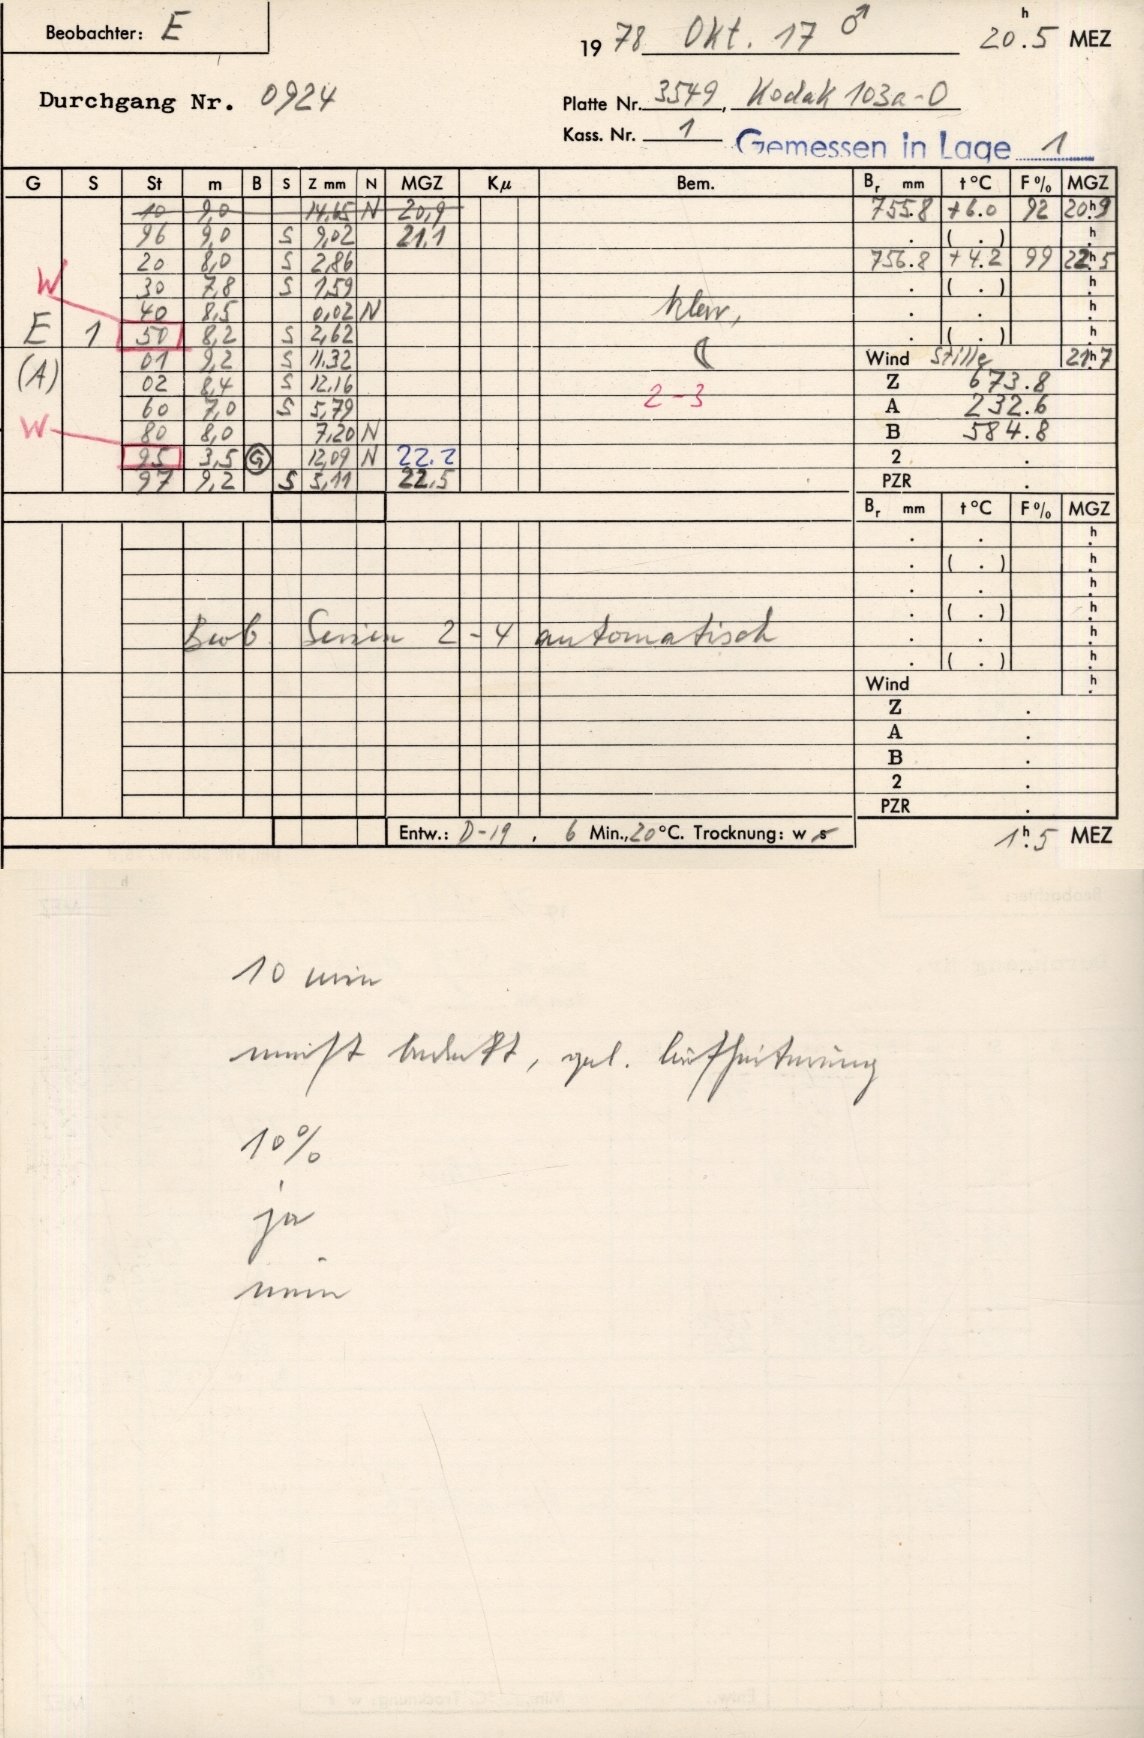 Beobachter: E
1978 Okt. 17 ♂ 20h.5 MEZ
Durchgang Nr. 0924
Platte Nr. 3549, Kodak 103a-O
Kass. Nr. 1 Gemessen in Lage 1
G S St m B S Z mm N MGZ Kμ Bem. Br mm t°C F% MGZ
10 9,0 14,65 N 20,9 755.8 +6.0 92 20h.9
96 9,0 S 9,02 21,1 . ( . ) h.
20 8,0 S 2,86 756.8 +4.2 99 22h.5
W 30 7,8 S 1,59 . ( . ) h.
40 8,5 0,02 N klar, . . h.
E 1 50 8,2 S 2,62 . ( . ) h.
01 9,2 S 11,32 ☾ Wind Stille 21h.7
(A) 02 8,4 S 12,16 Z 673.8
60 7,0 S 5,79 2-3 A 232.6
W 80 8,0 7,20 N B 584.8
95 3,5 G 12,09 N 22.2 2 .
97 9,2 S 5,11 22,5 PZR .
Br mm t°C F% MGZ
. . h.
. ( . ) h.
. . h.
. ( . ) h.
Beob Serien 2-4 automatisch . . h.
. ( . ) h.
Wind h.
Z .
A .
B .
2 .
PZR .
Entw.: D-19, 6 Min., 20°C. Trocknung: w s 1h.5 MEZ
10 min
meist bedeckt, gel. Aufheiterung
10%
ja
nein